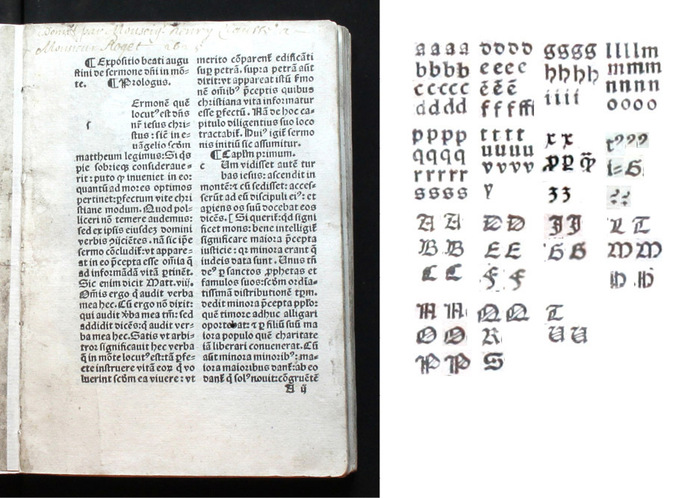 par henry
Monsieur Roget
¶ Expositio beati augu
stini de sermone dñi in mõ⸗
te. ¶ Prologus.
Ermonẽ quẽ
locutꝰ est dñs
nr̃ iesus chri⸗
stus : siẽ in e⸗
uãgelio scđm
mattheum legimus: Si qs
pie sobrieqꝫ considerauerit
rit: puto ꝙ inueniet in eo:
quantũ ad mores optimos
pertinet: ꝑfectum vite chri
stiane modum. Quod pol⸗
liceri nõ temere audemus:
sed ex ipsis eiusdeꝫ domini
verbis ꝯijciẽtes. nã sic ipe
sermo cõcludit̃: vt appare⸗
at in eo p̃cepta esse oĩa q̃
ad informãdã vitã ꝑtinẽt.
Sic enim dicit Matt.vij.
Om̃is ergo q̃ audit verba
mea hec. Cũ ergo nõ dixit:
qui audit v̾ba mea tm̃: sed
addidit dicẽs: q̃ audit ver⸗
ba mea hec. Satis vt arbi⸗
tror significauit hec verba
q̃ in mõte locutꝰ est: tã ꝑfe⸗
cte instruere vitã eoꝝ q̃ vo
luerint scđm ea viuere: vt
merito cõparent̃ edificãti
sup petrã. supra petrã aũt
dixit: vt appareat istũ ßmo
nẽ om̃ibꝰ p̃ceptis quibus
christiana vita informatur
esse ꝑfectũ. Nã de hoc ca⸗
pitulo diligentius suo loco
tractabit̃. Huiꝰ igit̃ sermo
nis initiũ sic assumitur.
¶ Captm̃ primum.
c Um vidisset autẽ tur
bas iesus: ascendit in
montẽ: ⁊ cũ sedisset: acces⸗
serũt ad eũ discipuli eiꝰ: et
apiens os suũ docebat eos
dicẽs. Si querit̃: qd signi
ficet mons: bene intelligit̃
significare maiora p̃cepta
iusticie: qꝫ minora erant q̃
iudeis data sunt. Unus tñ
deꝰ ꝑ sanctos ꝓphetas et
famulos suos: scđm ordia⸗
tissimã distributionẽ tꝑm.
dedit minora p̃cepta pplo:
quẽ timore adhuc alligari
oportebat: ⁊ ꝑ filiũ suũ ma
iora populo quẽ charitate
iã liberari conuenerat. Cũ
aũt minora minoribꝰ: ma⸗
iora maioribus dant̃: ab eo
dant̃ q̃ solꝰ nouit: cõgruẽtẽ
A ij
a a a a
b b b b
c c c c c
d d d d
d d d d
e e e c
ẽ ẽ ẽ
f f f ff fi
g g g g
h h h h
i i i i
l l l l m
m m m
n n n n
o o o o
p p p p
q q q q
r r r r r
s s s s
t t t t
u u u u
v v v v
y
x x
ꝝ ꝝ q̃
3 3
A A
B B
C C
D D
E E
F F
I I
G G
L L
M M
H H
N N
O O
P P
Q Q
R
S
T
U U